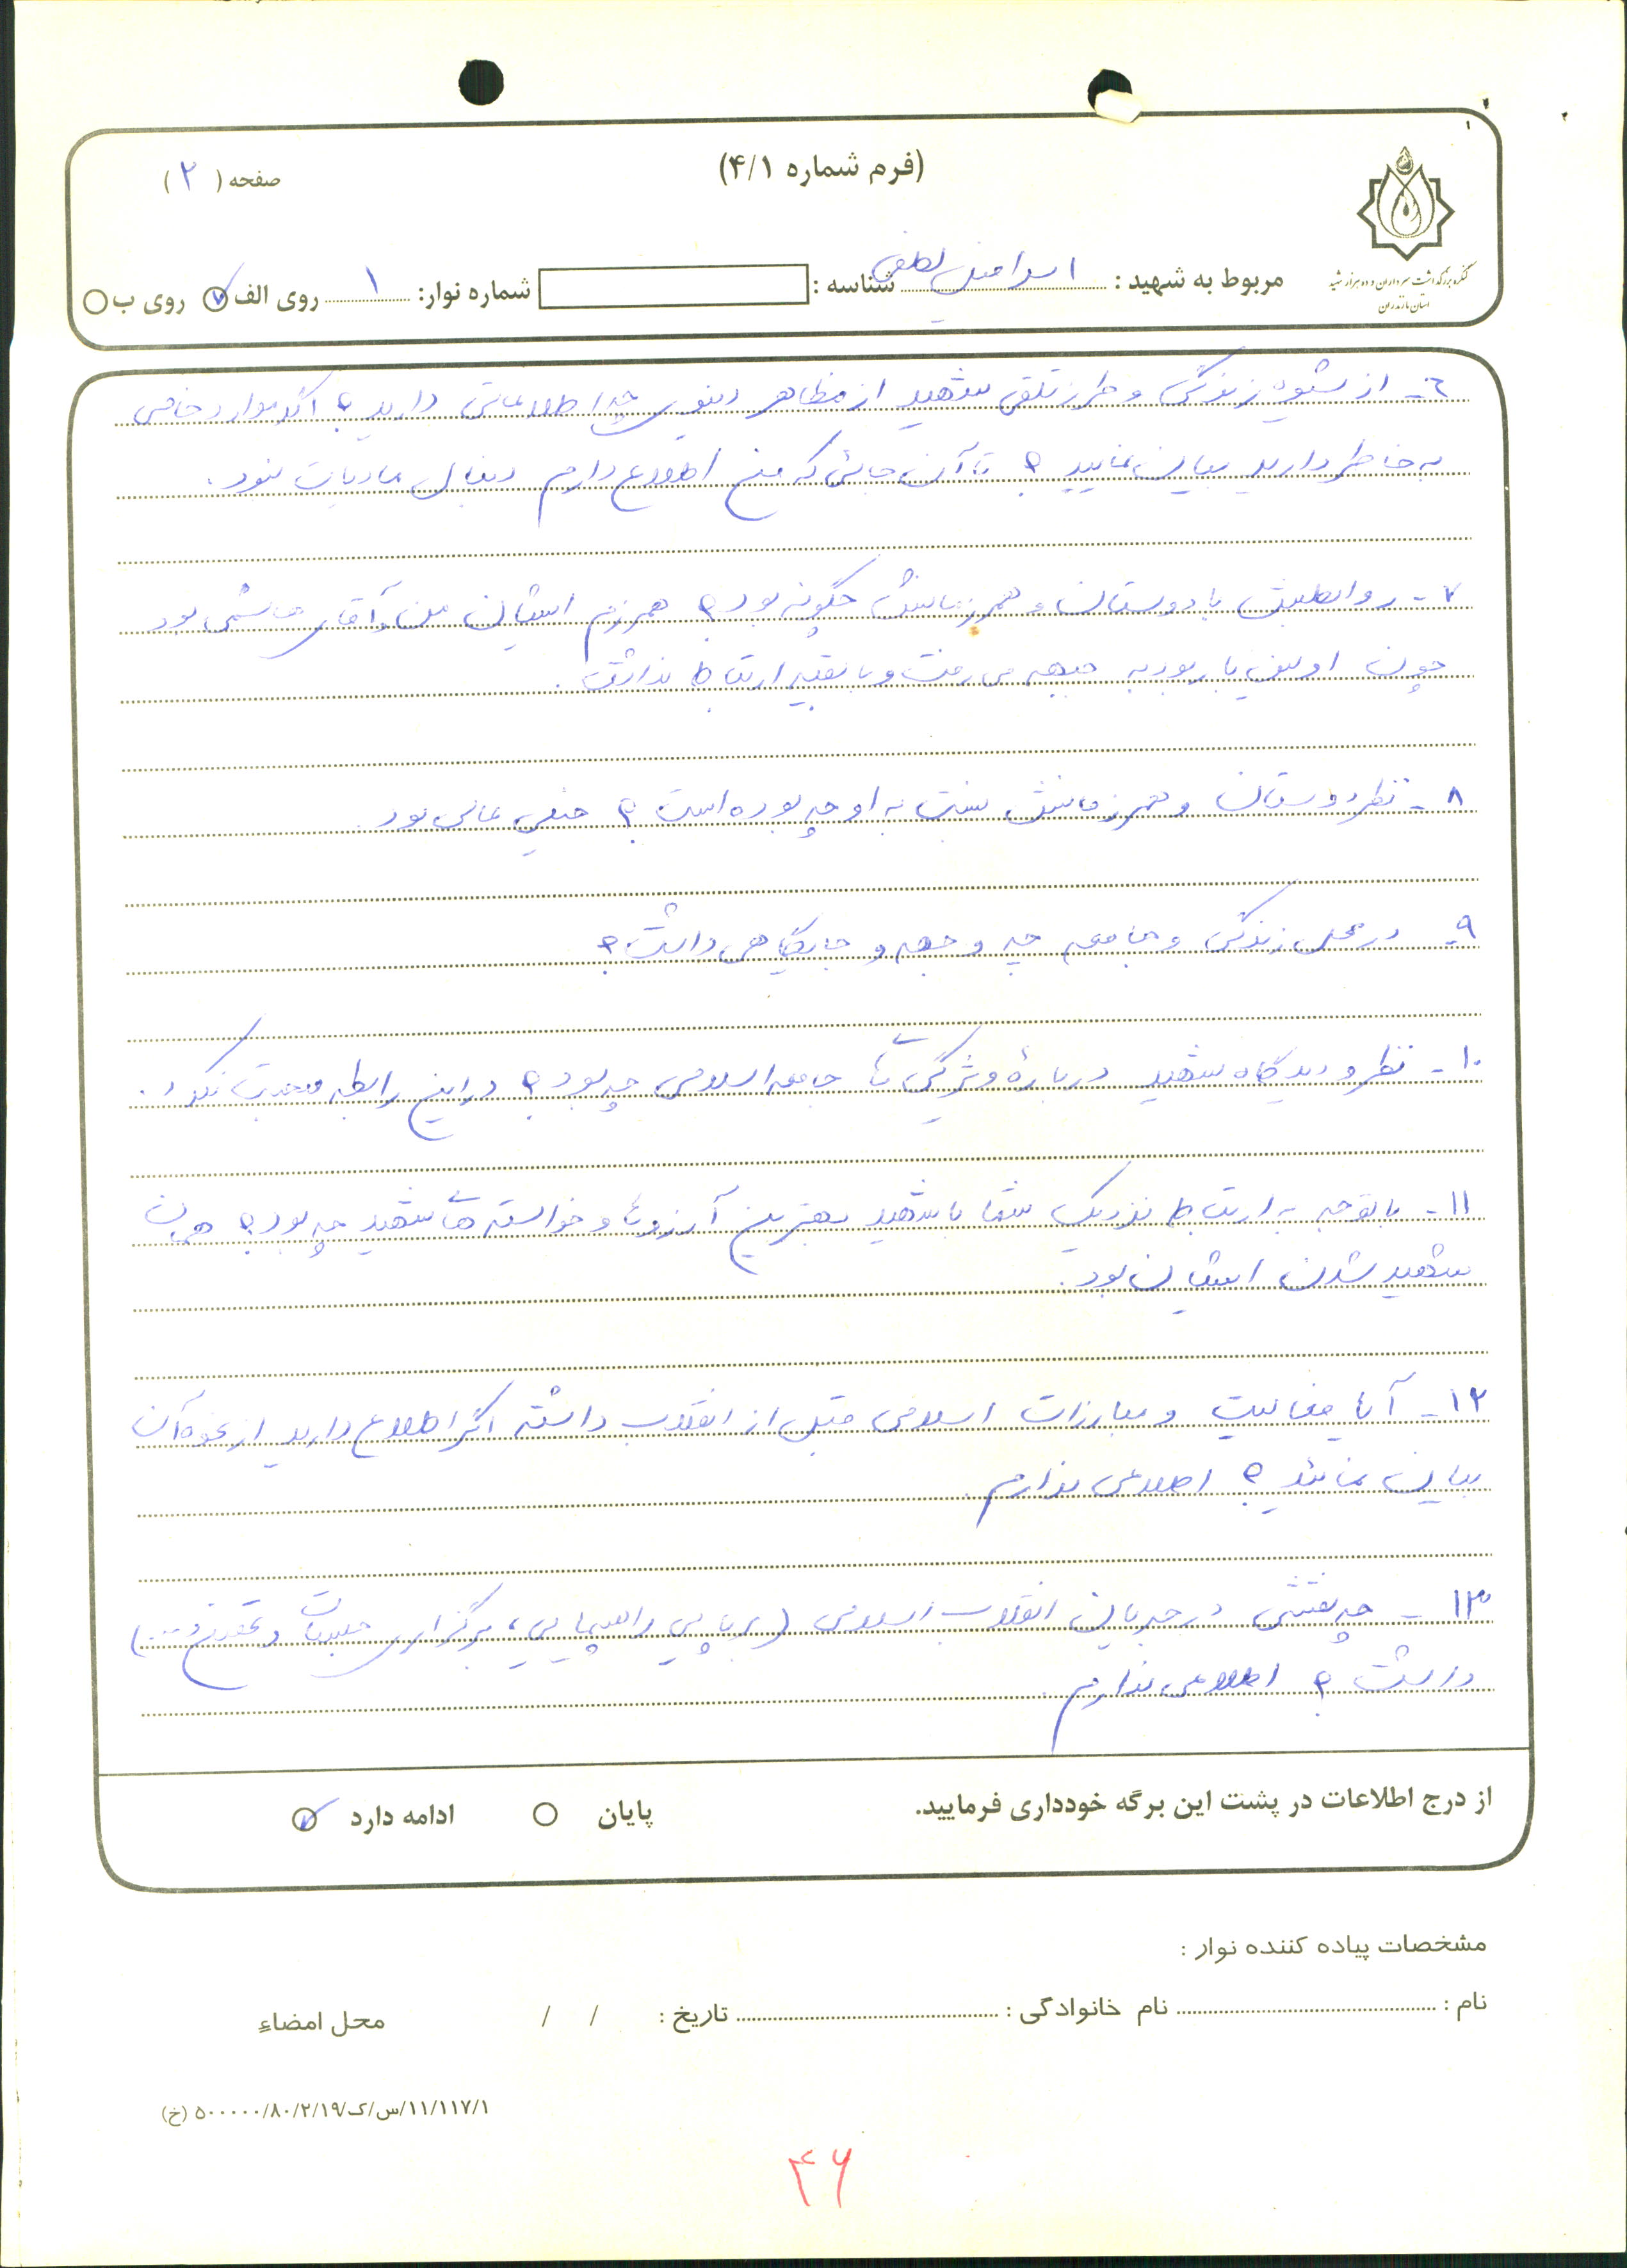 (فرم شماره ۴/۱)
صفحه ( ۲ )
کنگره بزرگداشت سرداران و ده هزار شهید
استان مازندران
مربوط به شهید : اسرافیل لطفی شناسه : شماره نوار: ۱ روی الف روی ب
۶- از شیوه زندگی و طرز تلقی شهید از مظاهر دنیوی چه اطلاعاتی دارید ؟ اگر موارد خاصی
به خاطر دارید بیان نمایید ؟ تا آن جائی که من اطلاع دارم دنبال مادیات نبود .
۷- روابطش با دوستان و همرزمانش چگونه بود ؟ همرزم ایشان من و آقای هاشمی بود
چون اولین بار بود به جبهه می رفت و با بقیه ارتباط نداشت .
۸- نظر دوستان و همرزمانش نسبت به او چه بوده است ؟ خیلی عالی بود .
۹- در محل زندگی و جامعه چه وجهه و جایگاهی داشت ؟
۱۰- نظر و دیدگاه شهید درباره ویژگی های جامعه اسلامی چه بود ؟ در این رابطه صحبت نکرد .
۱۱- با توجه به ارتباط نزدیک شما با شهید بهترین آرزوها و خواسته های شهید چه بود ؟ همان
شهید شدن ایشان بود .
۱۲- آیا فعالیت و مبارزات اسلامی قبل از انقلاب داشته اگر اطلاع دارید از نحوه آن
بیان نمائید ؟ اطلاعی ندارم .
۱۳- چه نقشی در جریان انقلاب اسلامی (برپایی راهپیمایی ، برگزاری جلسات و تحصن و ...)
داشت ؟ اطلاعی ندارم .
از درج اطلاعات در پشت این برگه خودداری فرمایید. پایان ادامه دارد
مشخصات پیاده کننده نوار :
نام : نام خانوادگی : تاریخ : / / محل امضاء
۱۱/۱۱۷/۱/س/ک/۵۰۰۰۰۰/۸۰/۲/۱۹ (خ)
۴۶